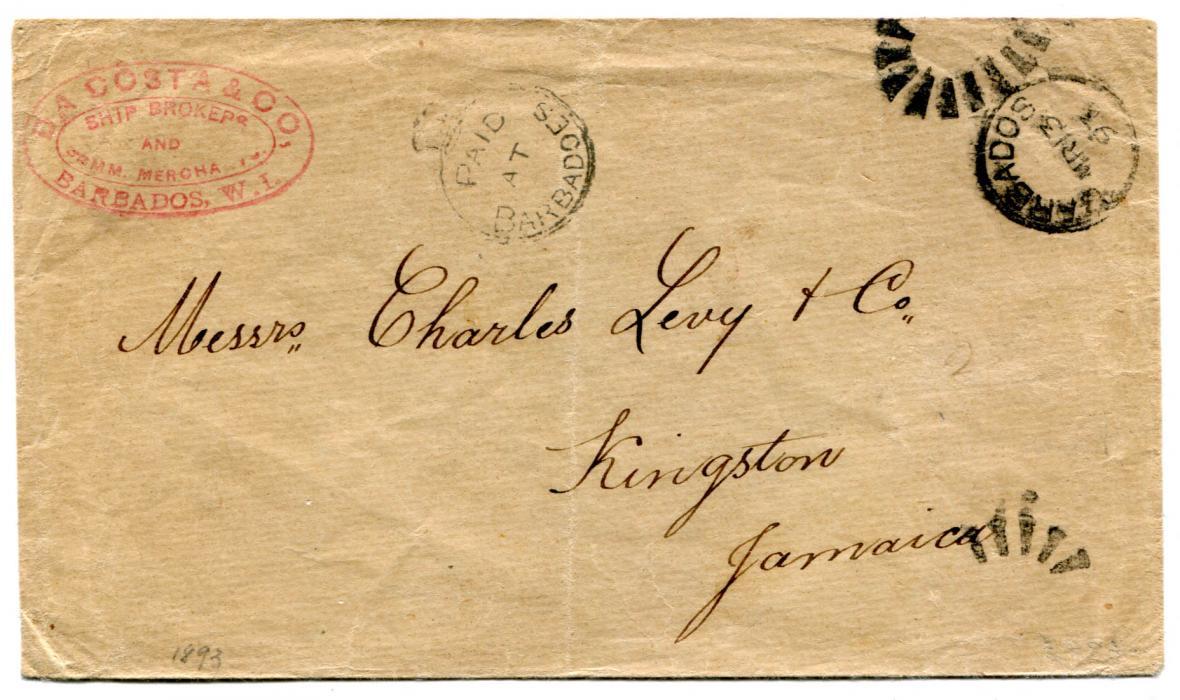 DA COSTA & CO,
SHIP BROKERS
AND
COMM. MERCHA
BARBADOS, W.I.
PAID
AT
BARBADOES
BARBADOS
MR 13
93
Messrs. Charles Levy & Co.
Kingston
Jamaica
1893